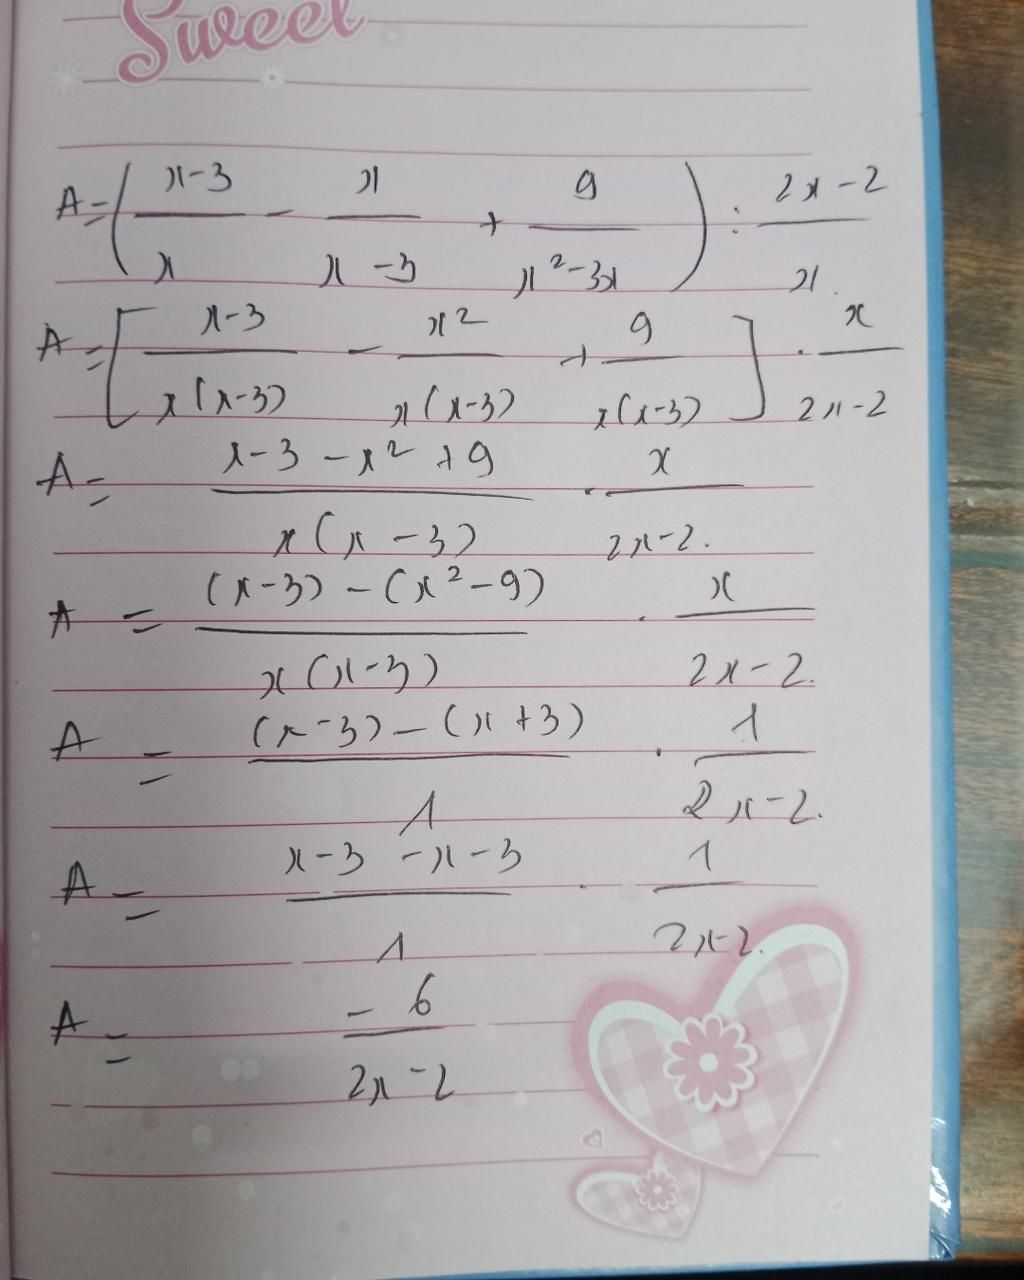 Sweet
A = ( (x-3)/x - x/(x-3) + 9/(x²-3x) ) : (2x-2)/x
A = [ (x-3)/(x(x-3)) - x²/(x(x-3)) + 9/(x(x-3)) ] . x/(2x-2)
A = (x-3-x²+9)/(x(x-3)) . x/(2x-2).
A = ((x-3)-(x²-9))/(x(x-3)) . x/(2x-2).
A = ((x-3)-(x+3))/1 . 1/(2x-2).
A = (x-3-x-3)/1 . 1/(2x-2).
A = -6/(2x-2)